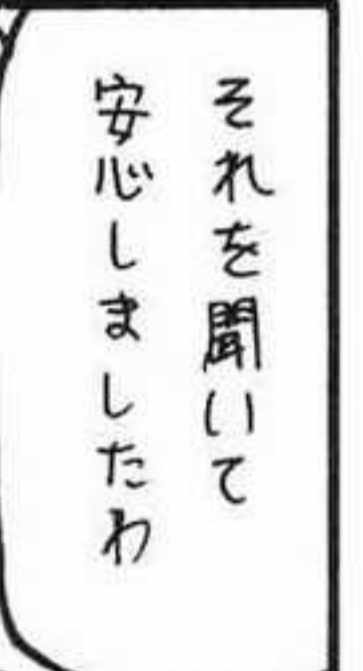 それを聞いて
安心しましたわ